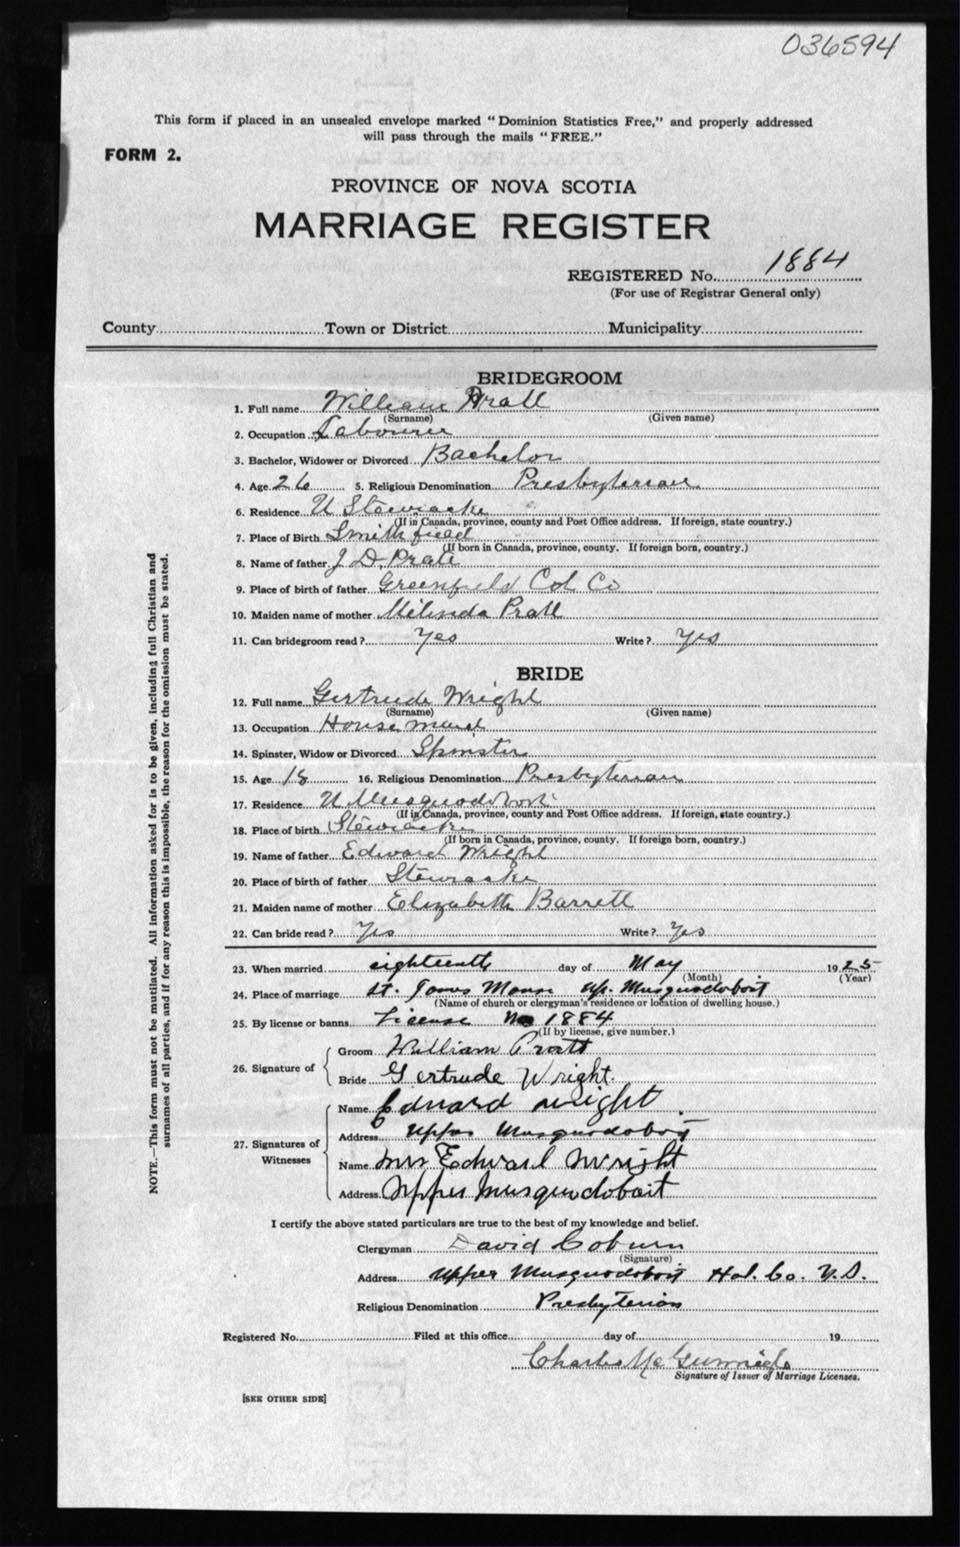 036594
This form if placed in an unsealed envelope marked "Dominion Statistics Free," and properly addressed
will pass through the mails "FREE."
FORM 2.
PROVINCE OF NOVA SCOTIA
MARRIAGE REGISTER
REGISTERED No. 1884
(For use of Registrar General only)
County Town or District Municipality
BRIDEGROOM
1. Full name William Pratt
(Surname) (Given name)
2. Occupation Labourer
3. Bachelor, Widower or Divorced Bachelor
4. Age 26 5. Religious Denomination Presbyterian
6. Residence U Stewiacke
(If in Canada, province, county and Post Office address. If foreign, state country.)
7. Place of Birth Smithfield
(If born in Canada, province, county. If foreign born, country.)
8. Name of father J D Pratt
9. Place of birth of father Greenfield Col Co
10. Maiden name of mother Milinda Pratt
11. Can bridegroom read? Yes Write? Yes
BRIDE
12. Full name Gertrude Wright
(Surname) (Given name)
13. Occupation House maid
14. Spinster, Widow or Divorced Spinster
15. Age 18 16. Religious Denomination Presbyterian
17. Residence U Musquodoboit
(If in Canada, province, county and Post Office address. If foreign, state country.)
18. Place of birth Stewiacke
(If born in Canada, province, county. If foreign born, country.)
19. Name of father Edward Wright
20. Place of birth of father Stewiacke
21. Maiden name of mother Elizabeth Barrett
22. Can bride read? Yes Write? Yes
23. When married eighteenth day of May 1925
(Month) (Year)
24. Place of marriage St. James Manse Up. Musquodoboit
(Name of church or clergyman's residence or location of dwelling house.)
25. By license or banns License No 1884
(If by license, give number.)
26. Signature of
Groom William Pratt
Bride Gertrude Wright.
27. Signatures of Witnesses
Name Edward Wright
Address Upper Musquodoboit
Name Mrs Edward Wright
Address Upper Musquodobait
I certify the above stated particulars are true to the best of my knowledge and belief.
Clergyman David Coburn
(Signature)
Address Upper Musquodoboit Hal. Co. N.S.
Religious Denomination Presbyterian
Registered No. Filed at this office day of 19
Charles
Signature of Issuer of Marriage Licenses.
[SEE OTHER SIDE]
NOTE.—This form must not be mutilated. All information asked for is to be given, including full Christian and
surnames of all parties, and if for any reason this is impossible, the reason for the omission must be stated.